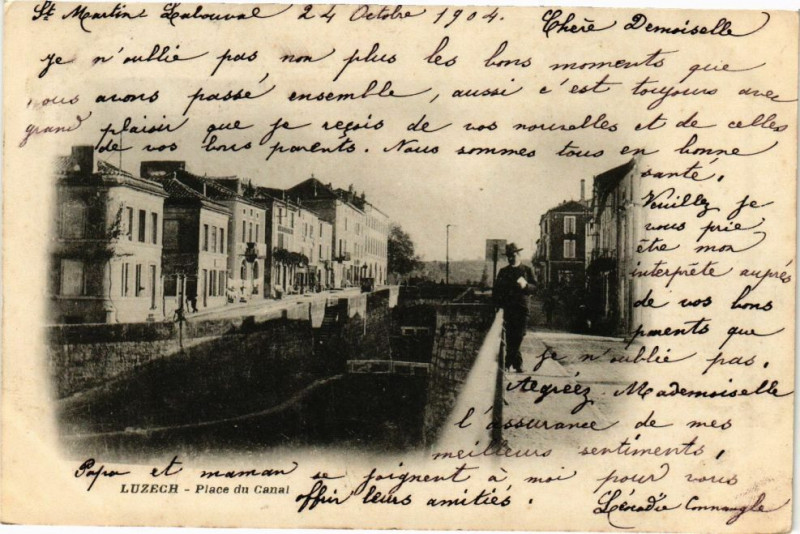 St Martin Labouval 24 Octobre 1904. Chère Demoiselle
Je n'oublie pas non plus les bons moments que
nous avons passé ensemble, aussi c'est toujours avec
grand plaisir que je reçois de vos nouvelles et de celles
de vos bons parents. Nous sommes tous en bonne
santé.
Veuillez je
vous prie
être mon
interprète auprès
de vos bons
parents que
je n'oublie pas.
Agréez Mademoiselle
l'assurance de mes
meilleurs sentiments,
Papa et maman se joignent à moi pour vous
offrir leurs amitiés.
Léocadie
LUZECH - Place du Canal